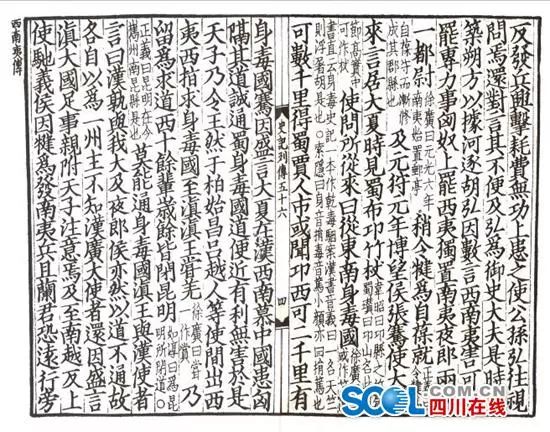 反發兵興擊耗費無功上患之使公孫弘往視
問焉還對言其不便及弘為御史大夫是時方
築朔方以據河逐胡弘因數言西南夷害可
罷專力事匈奴上罷西夷獨置南夷夜郎兩
一都尉 徐廣曰元光六年南夷始置郵亭 稍令犍為自葆就
自葆守而漸修成其郡縣也 及元狩元年博望侯張騫使大
來言居大夏時見蜀布邛竹杖
使問所從來曰從東南身毒國
史記列傳五十六 四
可數千里得蜀賈人市或聞邛西可二千里有
身毒國騫因盛言大夏在漢西南慕中國患匈
隔其道誠通蜀身毒國道便近有利無害於是
天子乃令王然于柏始昌呂越人等使閒出西
夷西指求身毒國至滇滇王嘗羌 徐廣曰嘗一作賞 乃
留為求道西十餘輩歲餘皆閉昆明 如淳曰為昆明所閉道
正義曰昆明在今嶲州南昆縣是也 莫能通身毒國滇王與漢使者
言曰漢孰與我大及夜郎侯亦然以道不通故
各自以為一州主不知漢廣大使者還因盛言
滇大國足事親附天子注意焉及至南越反上
使馳義侯因犍為發南夷兵且蘭君恐遠行旁
西南夷傳
SCOL.COM.CN
四川在线